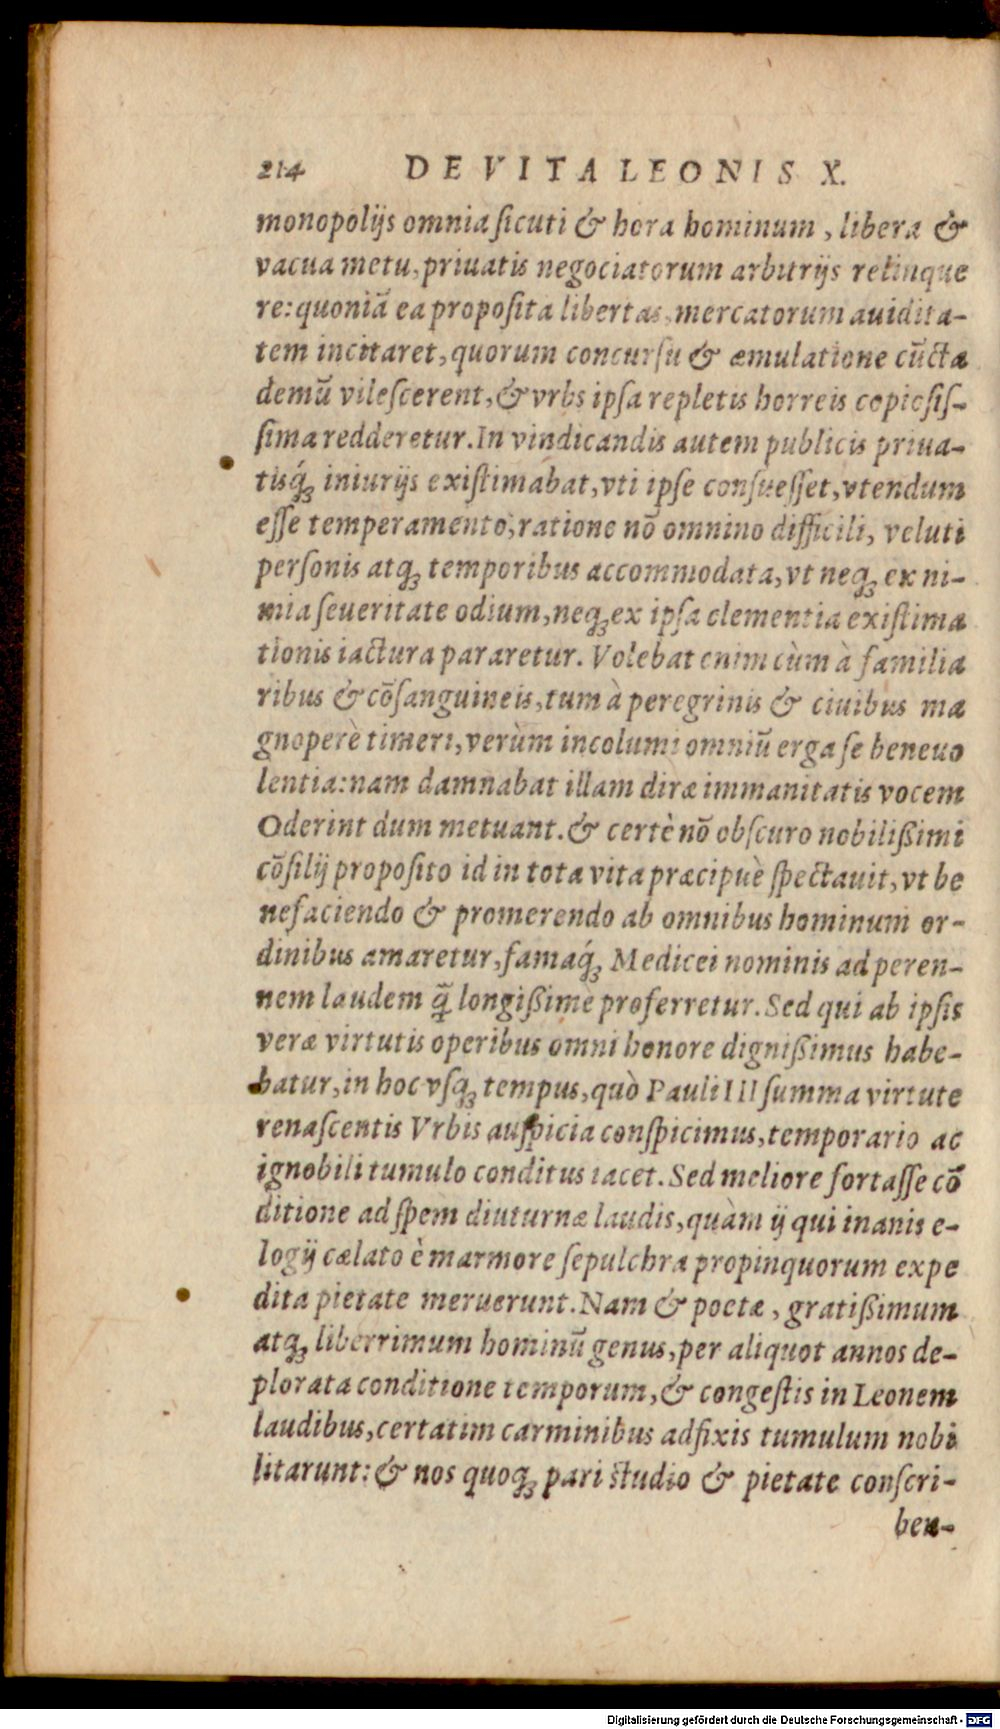 214 DE VITA LEONIS X.
monopolijs omnia ſicuti & hora hominum, libera &
vacua metu, priuatis negociatorum arbitrijs relinque
re: quoniā ea propoſita libertas, mercatorum auidita-
tem incitaret, quorum concurſu & æmulatione cūcta
demū vileſcerent, & vrbs ipſa repletis horreis copioſiſ-
ſima redderetur. In vindicandis autem publicis priua-
tisq́ꝫ iniurijs exiſtimabat, vti ipſe conſueſſet, vtendum
eſſe temperamento, ratione nō omnino difficili, veluti
perſonis atqꝫ temporibus accommodata, vt neqꝫ ex ni-
mia ſeueritate odium, neqꝫ ex ipſa clementia exiſtima
tionis iactura pararetur. Volebat enim cùm à familia
ribus & cōſanguineis, tum à peregrinis & ciuibus ma
gnoperè timeri, verùm incolumi omniū erga ſe beneuo
lentia: nam damnabat illam diræ immanitatis vocem
Oderint dum metuant. & certè nō obſcuro nobilißimi
cōſilij propoſito id in tota vita præcipuè ſpectauit, vt be
nefaciendo & promerendo ab omnibus hominum or-
dinibus amaretur, famaq́ꝫ Medicei nominis ad peren-
nem laudem q̄̃ longißime proferretur. Sed qui ab ipſis
veræ virtutis operibus omni honore dignißimus habe-
batur, in hoc vſqꝫ tempus, quò Pauli III ſumma virtute
renaſcentis Vrbis auſpicia conſpicimus, temporario ac
ignobili tumulo conditus iacet. Sed meliore fortaſſe cō
ditione ad ſpem diuturnæ laudis, quàm ij qui inanis e-
logij cælato è marmore ſepulchra propinquorum expe
dita pietate meruerunt. Nam & poetæ, gratißimum
atqꝫ liberrimum hominū genus, per aliquot annos de-
plorata conditione temporum, & congeſtis in Leonem
laudibus, certatim carminibus adfixis tumulum nobi
litarunt: & nos quoqꝫ pari ſtudio & pietate conſcri-
ben-
Digitalisierung gefördert durch die Deutsche Forschungsgemeinschaft - DFG